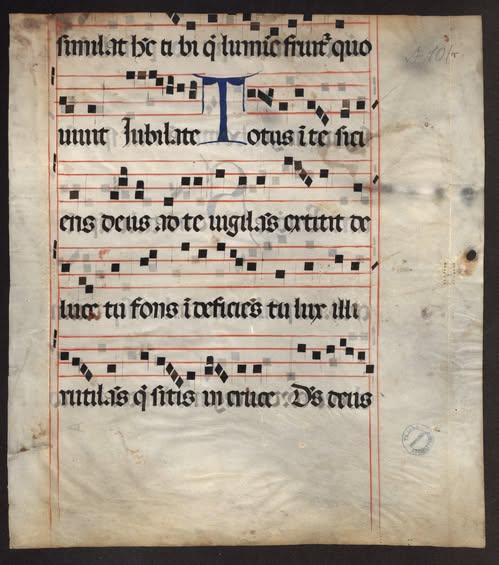 similat hc̄ ti bi q̄ lumīe fruit᷑ quo
uiuit Iubilate Totus ī te sici
ens deus ad te uigilās de
luce tu fons īdeficiēs tu lux illi
rutilās q̄ sitis in cruce D̄s deus